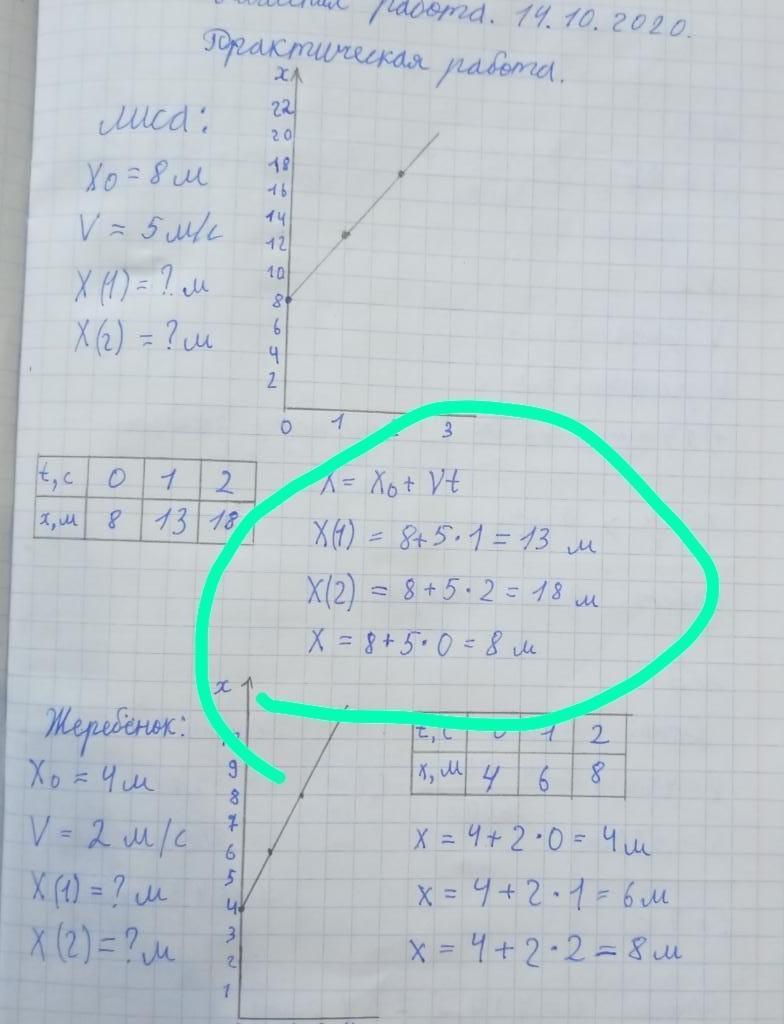 работа. 14.10.2020.
Практическая работа.
Лиса:
X₀ = 8 м
V = 5 м/с
X(1) = ? м
X(2) = ? м
x
22
20
18
16
14
12
10
8
6
4
2
0 1 3
t,с 0 1 2
x,м 8 13 18
X = X₀ + Vt
X(1) = 8+5·1 = 13 м
X(2) = 8+5·2 = 18 м
X = 8+5·0 = 8 м
Жеребёнок:
X₀ = 4 м
V = 2 м/с
X(1) = ? м
X(2) = ? м
x
9
8
7
6
5
4
3
2
1
t,с 0 1 2
x,м 4 6 8
x = 4+2·0 = 4 м
x = 4+2·1 = 6 м
x = 4+2·2 = 8 м